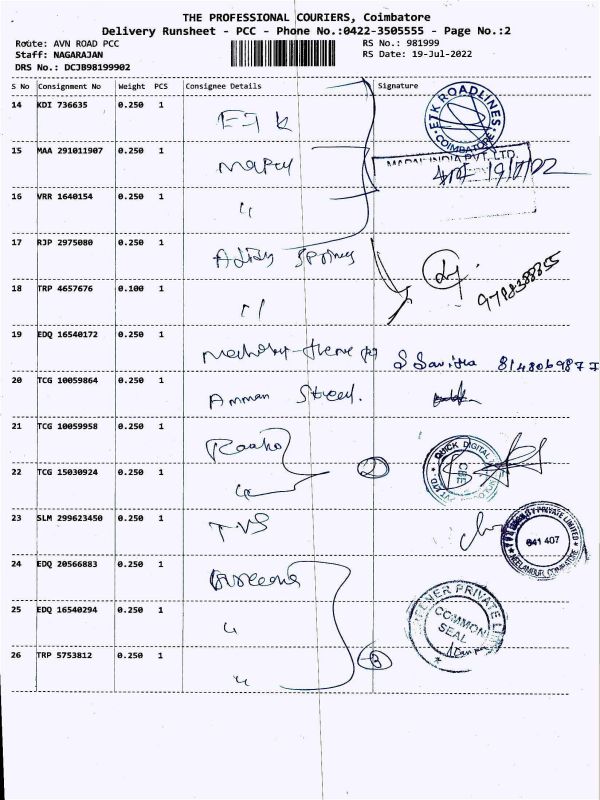 THE PROFESSIONAL COURIERS, Coimbatore
Delivery Runsheet - PCC - Phone No.:0422-3505555 - Page No.:2
Route: AVN ROAD PCC
RS No.: 981999
Staff: NAGARAJAN
RS Date: 19-Jul-2022
DRS No.: DCJB98199902
S No Consignment No Weight PCS Consignee Details Signature
14 KDI 736635 0.250 1 ETK
ETK ROADLINES
COIMBATORE
15 MAA 291011907 0.250 1
INDIA PVT. LTD.
16 VRR 1640154 0.250 1 "
17 RJP 2975080 0.250 1 Springs
18 TRP 4657676 0.100 1 "
19 EDQ 16540172 0.250 1 S Savitha
20 TCG 10059864 0.250 1 Amman Steel.
21 TCG 10059958 0.250 1
QUICK DIGITAL
22 TCG 15030924 0.250 1 " 2
23 SLM 299623450 0.250 1 TVS
PRIVATE LIMITED
641 407
NEELAMBUR, COIMBATORE
24 EDQ 20566883 0.250 1
PRIVATE
COMMON
SEAL
25 EDQ 16540294 0.250 1 "
26 TRP 5753812 0.250 1 " 3